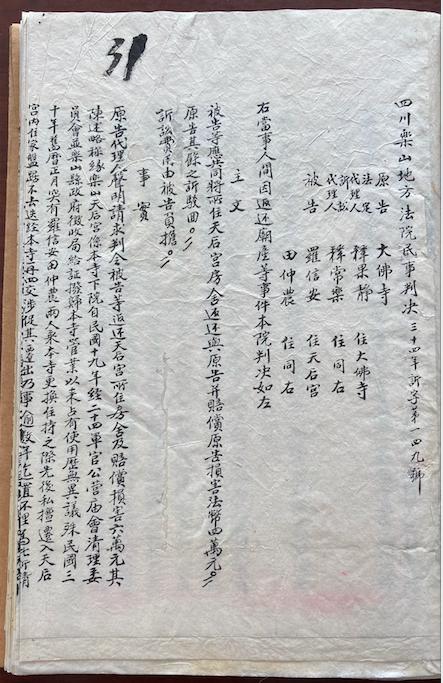 31
四川樂山地方法院民事判決 三十四年訴字第一四九號
原告 大佛寺
法定代理人 釋果靜 住大佛寺
訴訟代理人 釋常樂 住同右
被告 羅信安 住天后宮
田仲農 住同右
右當事人間因返还廟產等事件本院判决如左
主文
被告等应共同將所住天后宮房舍返还與原告并賠償原告損害法幣四萬元。
原告其餘之訴駁回。
訴訟費用由被告負擔。
事實
原告代理人聲明請求判令被告等返还天后宮所住房舍及賠償損害六萬元其
陳述略稱緣樂山天后宮係本寺下院自民國十九年經二十四軍官公营庙會清理委
員會並樂山縣政府徵收局給証撥歸本寺管業以來占有使用歷無異議殊民國三
十年舊曆正月突有羅信安田仲農兩人乘本寺更換住持之際先後私擅遷入天后
宮內住家盤踞不去迭經本寺再四交涉促其遷出乃事逾數年